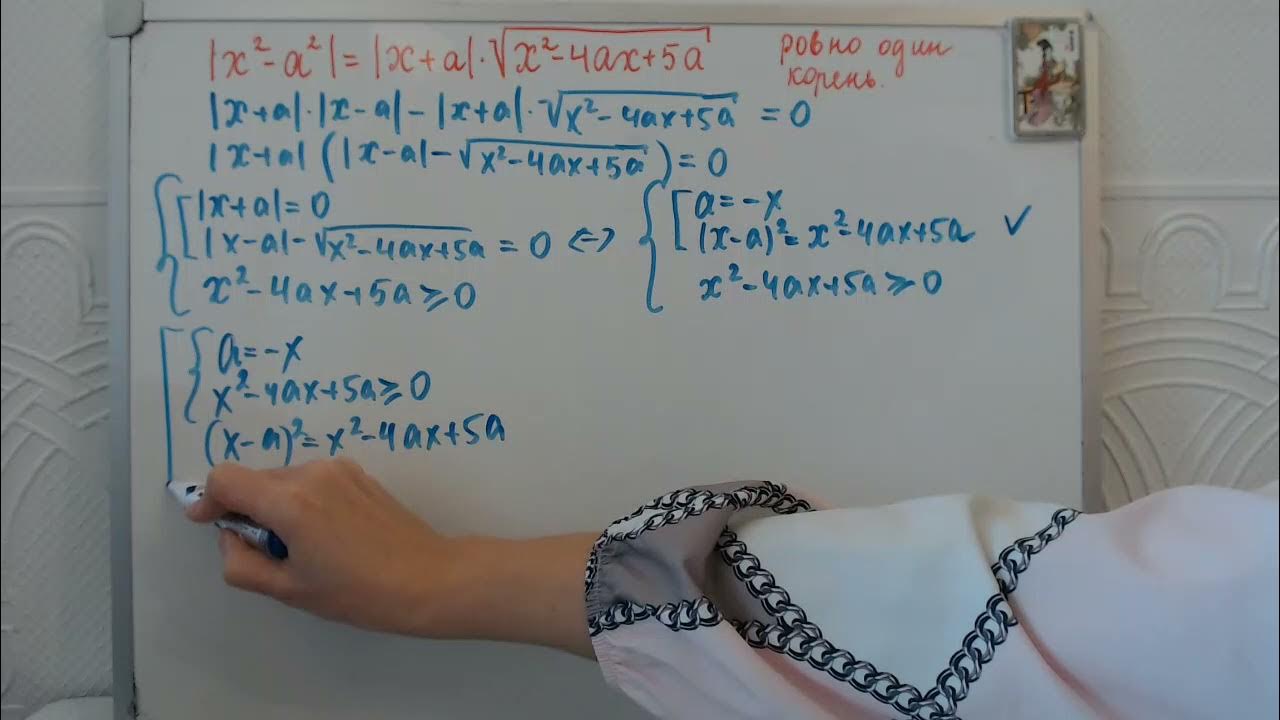 |x²-a²|=|x+a|·√(x²-4ax+5a) ровно один корень.
|x+a|·|x-a|-|x+a|·√(x²-4ax+5a) = 0
|x+a|(|x-a|-√(x²-4ax+5a))=0
{[|x+a|=0
|x-a|-√(x²-4ax+5a) = 0 <->
x²-4ax+5a≥0
{[a=-x
(x-a)²=x²-4ax+5a ✓
x²-4ax+5a≥0
[{a=-x
x²-4ax+5a≥0
(x-a)²=x²-4ax+5a